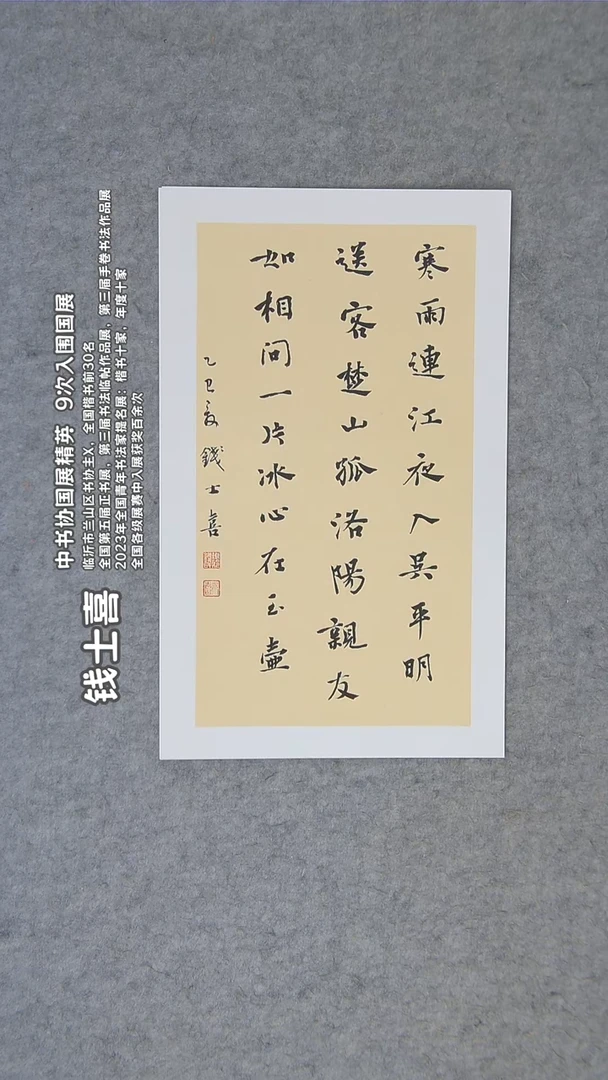 寒雨連江夜入吳平明
送客楚山孤洛陽親友
如相問一片冰心在玉壺
乙巳夏錢士喜
钱士喜
中书协国展精英 9次入围国展
临沂市兰山区书协主X，全国楷书前30名
全国第五届正书展、第三届书法临帖作品展、第三届手卷书法作品展
2023年全国青年书法家提名展：楷书十家，年度十家
全国各级展赛中入展获奖百余次